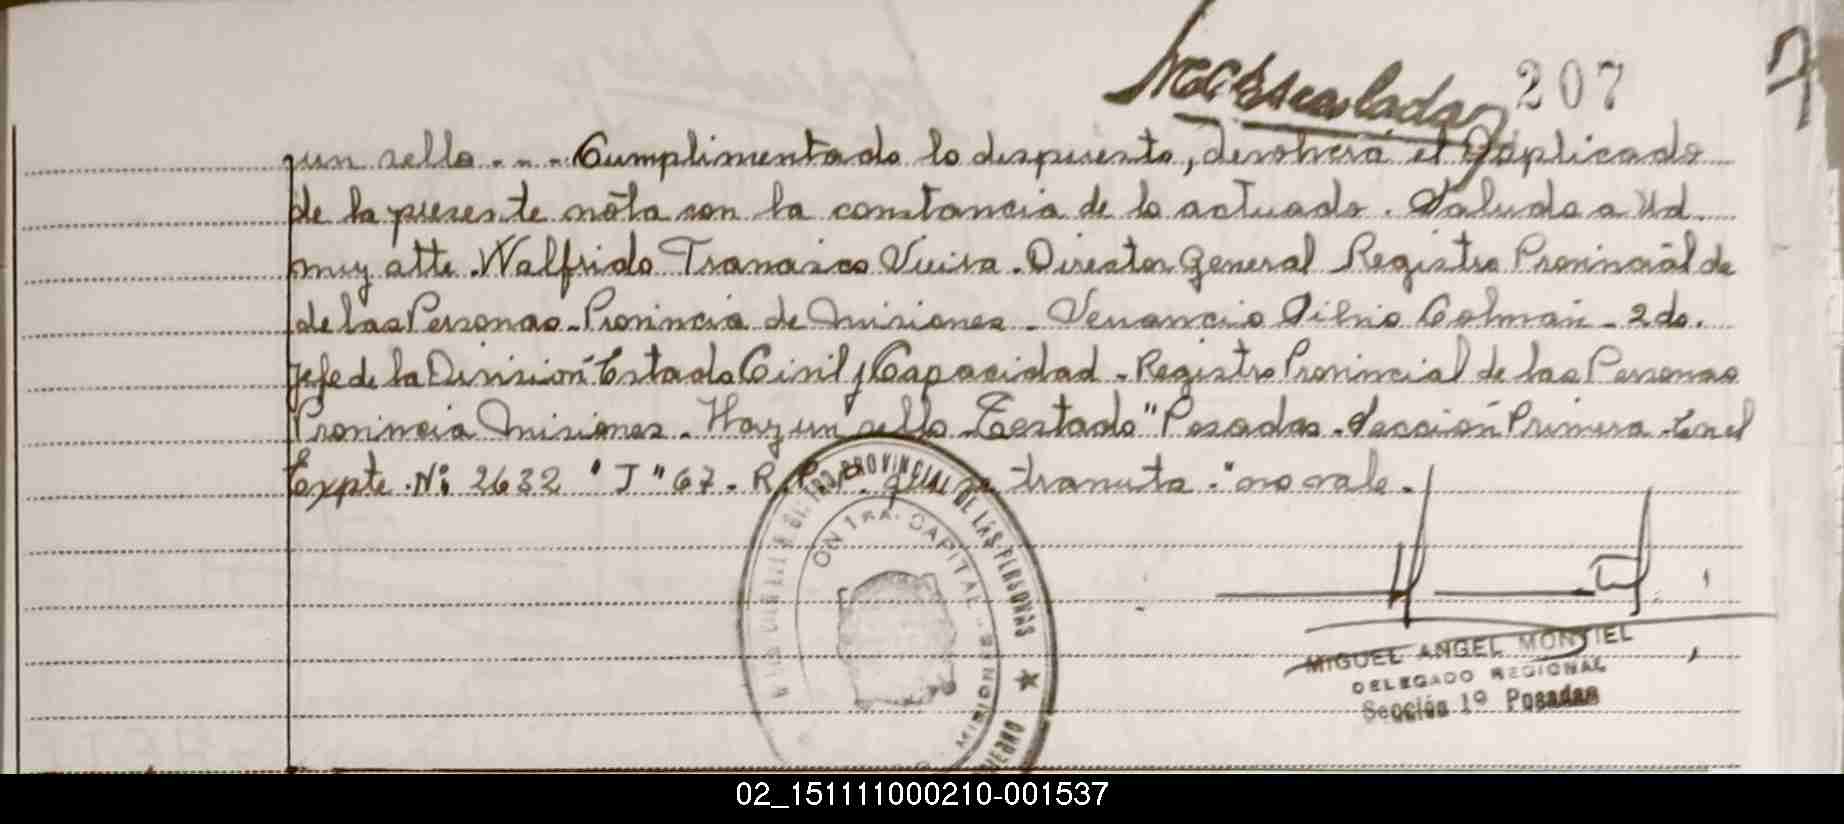 207
7
un sello. - - - Cumplimentado lo dispuesto, devolverá el duplicado
de la presente nota con la constancia de lo actuado. Saludo a Ud.
muy atte. Walfrido Francisco Vieira. Director General Registro Provincial de
de las Personas. Provincia de Misiones. Venancio Silvio Colman - 2do.
Jefe de la División Estado Civil y Capacidad. Registro Provincial de las Personas
Provincia Misiones. Hay un sello. Testado "Posadas. Sección Primera. En el
Expte. Nº 2632 "J" 67. R.P.P. que se tramita." no vale.
PROVINCIAL DE LAS PERSONAS
1RA. CAPITAL
MIGUEL ANGEL MONTIEL
DELEGADO REGIONAL
Sección 1º Posadas
02_151111000210-001537